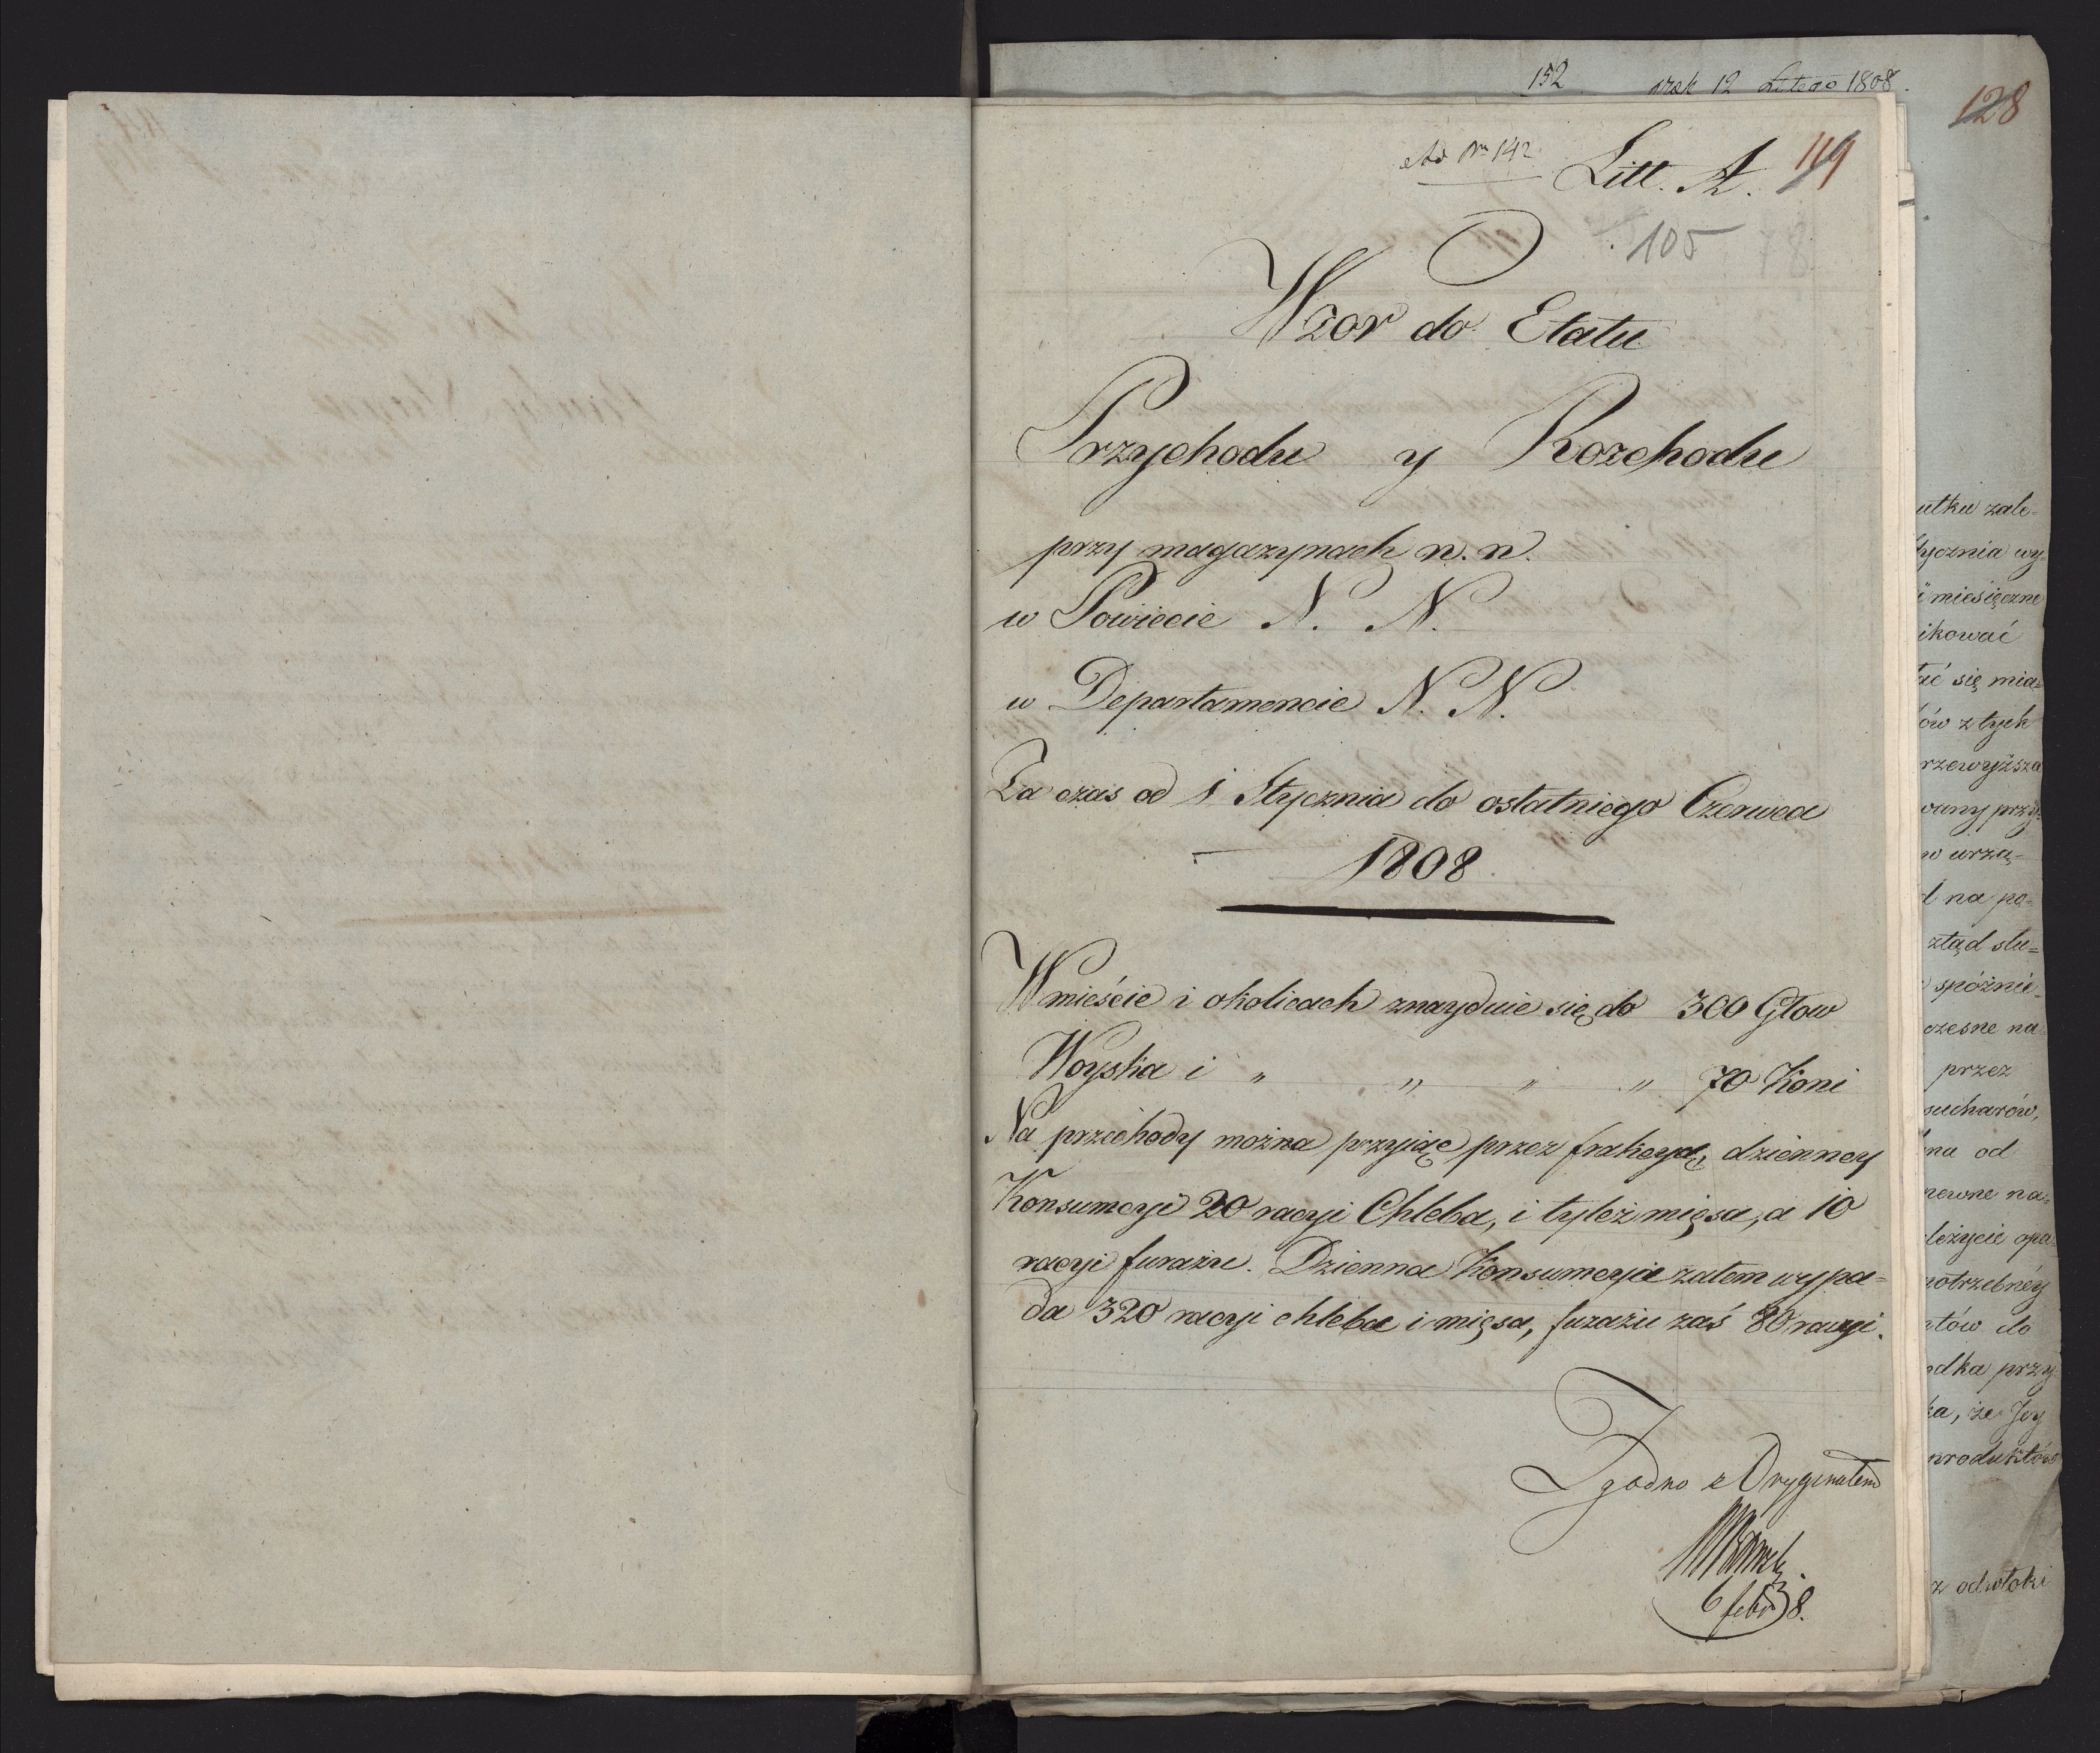 152 prak 12 Lutego 1808.
128
ad Nr 142 Litt. A. 119
105
Wzor do Etatu
Przychodu y Rozchodu
przy magazynach n. n.
w Powiecie N. N.
w Departamencie N. N.
Za czas od 1 Stycznia do ostatniego Czerwca
1808.
W mieście i okolicach znayduie się do 300 Głow
Woyska i " " " " 70 Koni
Na przechody można przyiąć przez frakcyą dzienney
Konsumcyi 20 racyi Chleba, i tyleż mięsa, a 10
racyi furażu. Dzienna Konsumcyia zatem wypa=
da 320 racyi chleba i mięsa, furażu zaś 80 racyi.
Zgodno z Oryginałem
6 febr 8.
utku zale=
tycznia wy=
miesięczne
ikować
ać się mia=
ów z tych
rzewyższa
wany przy=
w urzą=
d na po=
ztąd słu=
spóźnie=
czesne na=
przez
sucharów,
na od
pewne na=
leżycie opa=
potrzebnéy
któw do
odka przy
ka, że Jey
produktów
z odwłoki